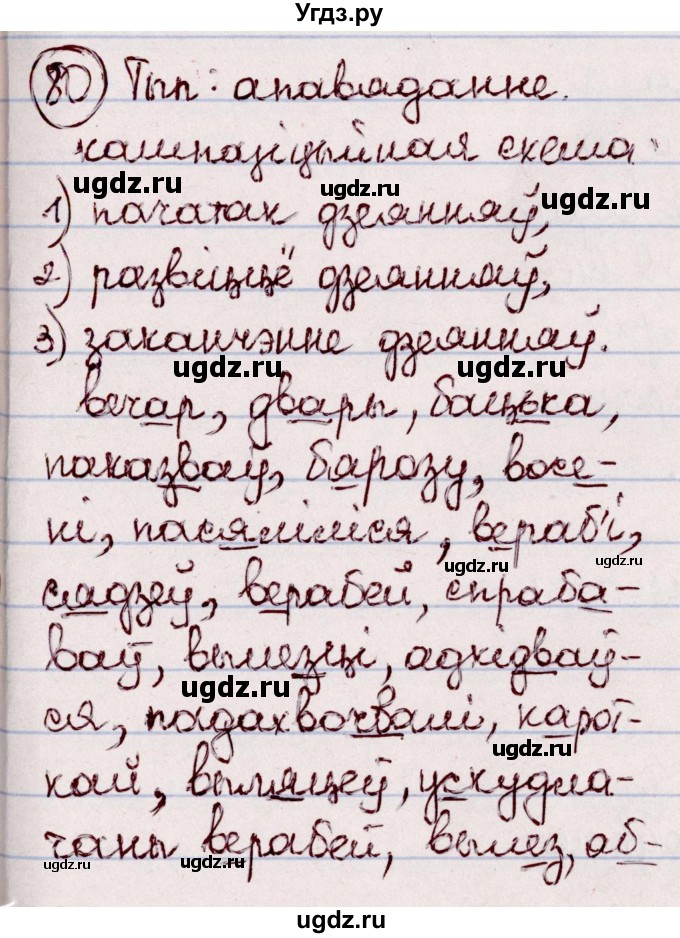 Угдз.ру
80 Тып: апавяданне.
кампазіцыйная схема:
1) пачатак дзеянняў,
2) развіццё дзеянняў,
3) заканчэнне дзеянняў.
вечар, двары, бацька,
паказваў, бярозу, восе-
ні, пасяліліся, вераб'і,
сядзеў, верабей, спраба-
ваў, вылезці, адкідваў-
ся, падахвочвалі, карот-
кой, вылящеў, ускудла-
чаны верабей, вылез, аб-
ugdz.ru
ugdz.ru
ugdz.ru
ugdz.ru
ugdz.ru
ugdz.ru
ugdz.ru
ugdz.ru
ugdz.ru
ugdz.ru
ugdz.ru
ugdz.ru
ugdz.ru
ugdz.ru